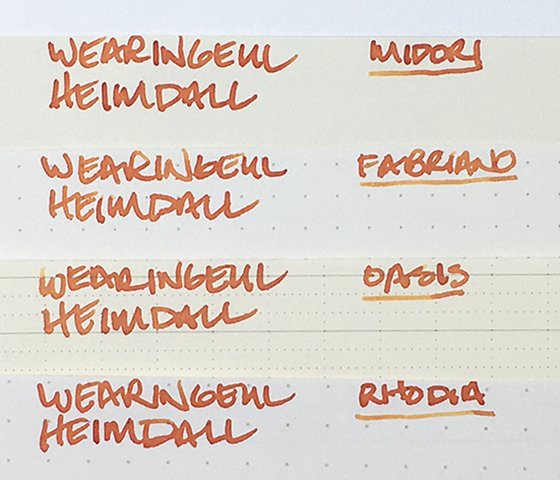 WEARINGEUL MIDORI
HEIMDALL
WEARINGEUL FABRIANO
HEIMDALL
WEARINGEUL OASIS
HEIMDALL
WEARINGEUL RHODIA
HEIMDALL